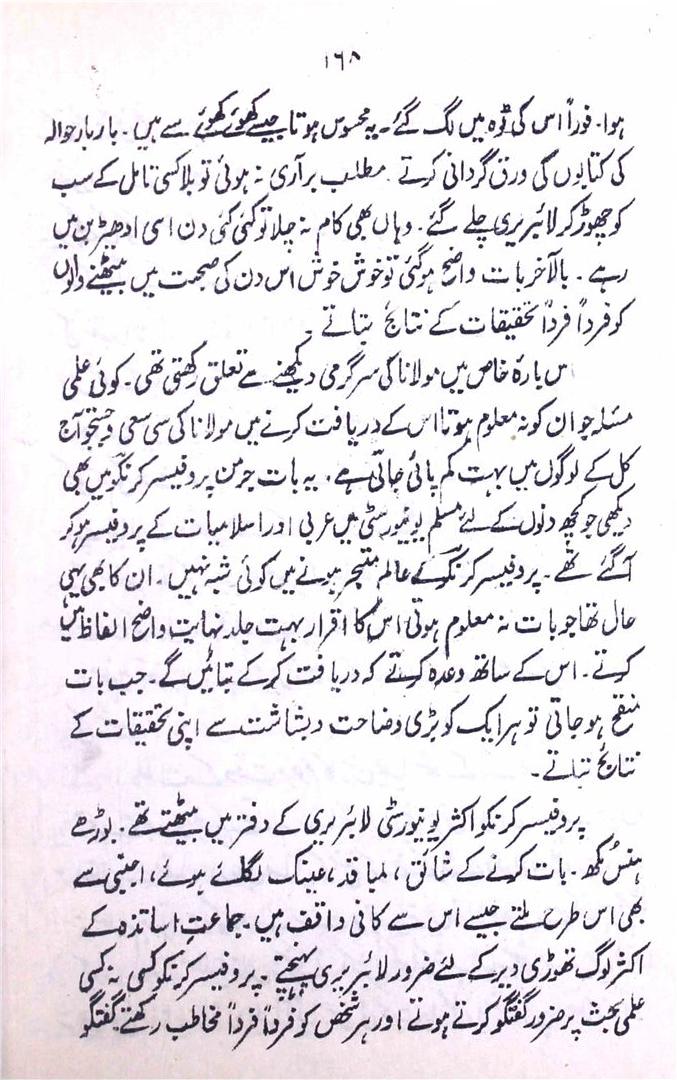 ۱۶۸
ہوا۔ فوراً اس کی ٹوہ میں لگ گئے۔ یہ محسوس ہوتا جیسے کھوئے کھوئے سے ہیں۔ بار بار حوالہ
کی کتابوں کی ورق گردانی کرتے۔ مطلب برآری نہ ہوئی تو بلا کسی تامل کے سب
کو چھوڑ کر لائبریری چلے گئے۔ وہاں بھی کام نہ چلا تو کئی کئی دن اسی ادھیڑ بن میں
رہے۔ بالآخر بات واضح ہو گئی تو خوش خوش اس دن کی صحبت میں بیٹھنے والوں
کو فرداً فرداً تحقیقات کے نتائج بتاتے۔
اس بارۂ خاص میں مولانا کی سرگرمی دیکھنے سے تعلق رکھتی تھی۔ کوئی علمی
مسئلہ جو ان کو نہ معلوم ہوتا اس کے دریافت کرنے میں مولانا کی سی سعی و جستجو آج
کل کے لوگوں میں بہت کم پائی جاتی ہے۔ یہ بات جرمن پروفیسر کرنکو میں بھی
دیکھی جو کچھ دنوں کے لئے مسلم یونیورسٹی میں عربی اور اسلامیات کے پروفیسر ہو کر
آگئے تھے۔ پروفیسر کرنکو کے عالم متبحر ہونے میں کوئی شبہ نہیں۔ ان کا بھی یہی
حال تھا جو بات نہ معلوم ہوتی اس کا اقرار بہت جلد نہایت واضح الفاظ میں
کرتے۔ اس کے ساتھ وعدہ کرتے کہ دریافت کر کے بتائیں گے۔ جب بات
منقح ہو جاتی تو ہر ایک کو بڑی وضاحت و بشاشت سے اپنی تحقیقات کے
نتائج بتاتے۔
پروفیسر کرنکو اکثر یونیورسٹی لائبریری کے دفتر میں بیٹھتے تھے۔ بوڑھے
ہنس مکھ۔ بات کرنے کے شائق، لمبا قد، عینک لگائے ہوئے، اجنبی سے
بھی اس طرح ملتے جیسے اس سے کافی واقف ہیں۔ جماعت اساتذہ کے
اکثر لوگ تھوڑی دیر کے لئے ضرور لائبریری پہنچتے۔ پروفیسر کرنکو کسی نہ کسی
علمی بحث پر ضرور گفتگو کرتے ہوتے اور ہر شخص کو فرداً فرداً مخاطب رکھتے۔ گفتگو